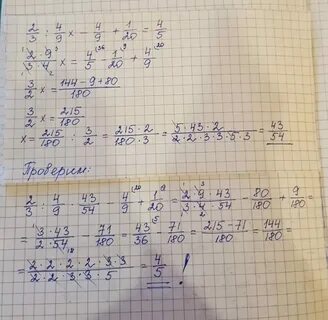 2/3 : 4/9 x - 4/9 + 1/20 = 4/5
2·9/3·4 x = 4/5 - 1/20 + 4/9
3/2 x = 144-9+80/180
3/2 x = 215/180
x = 215/180 : 3/2 = 215·2/180·3 = 5·43·2/2·2·3·3·5·3 = 43/54
Проверим:
2/3 : 4/9 · 43/54 - 4/9 + 1/20 = 2·9·43/3·4·54 - 80/180 + 9/180 =
= 3·43/2·54 - 71/180 = 43/36 - 71/180 = 215-71/180 = 144/180 =
= 2·2·2·2·3·3/2·2·3·3·5 = 4/5 !